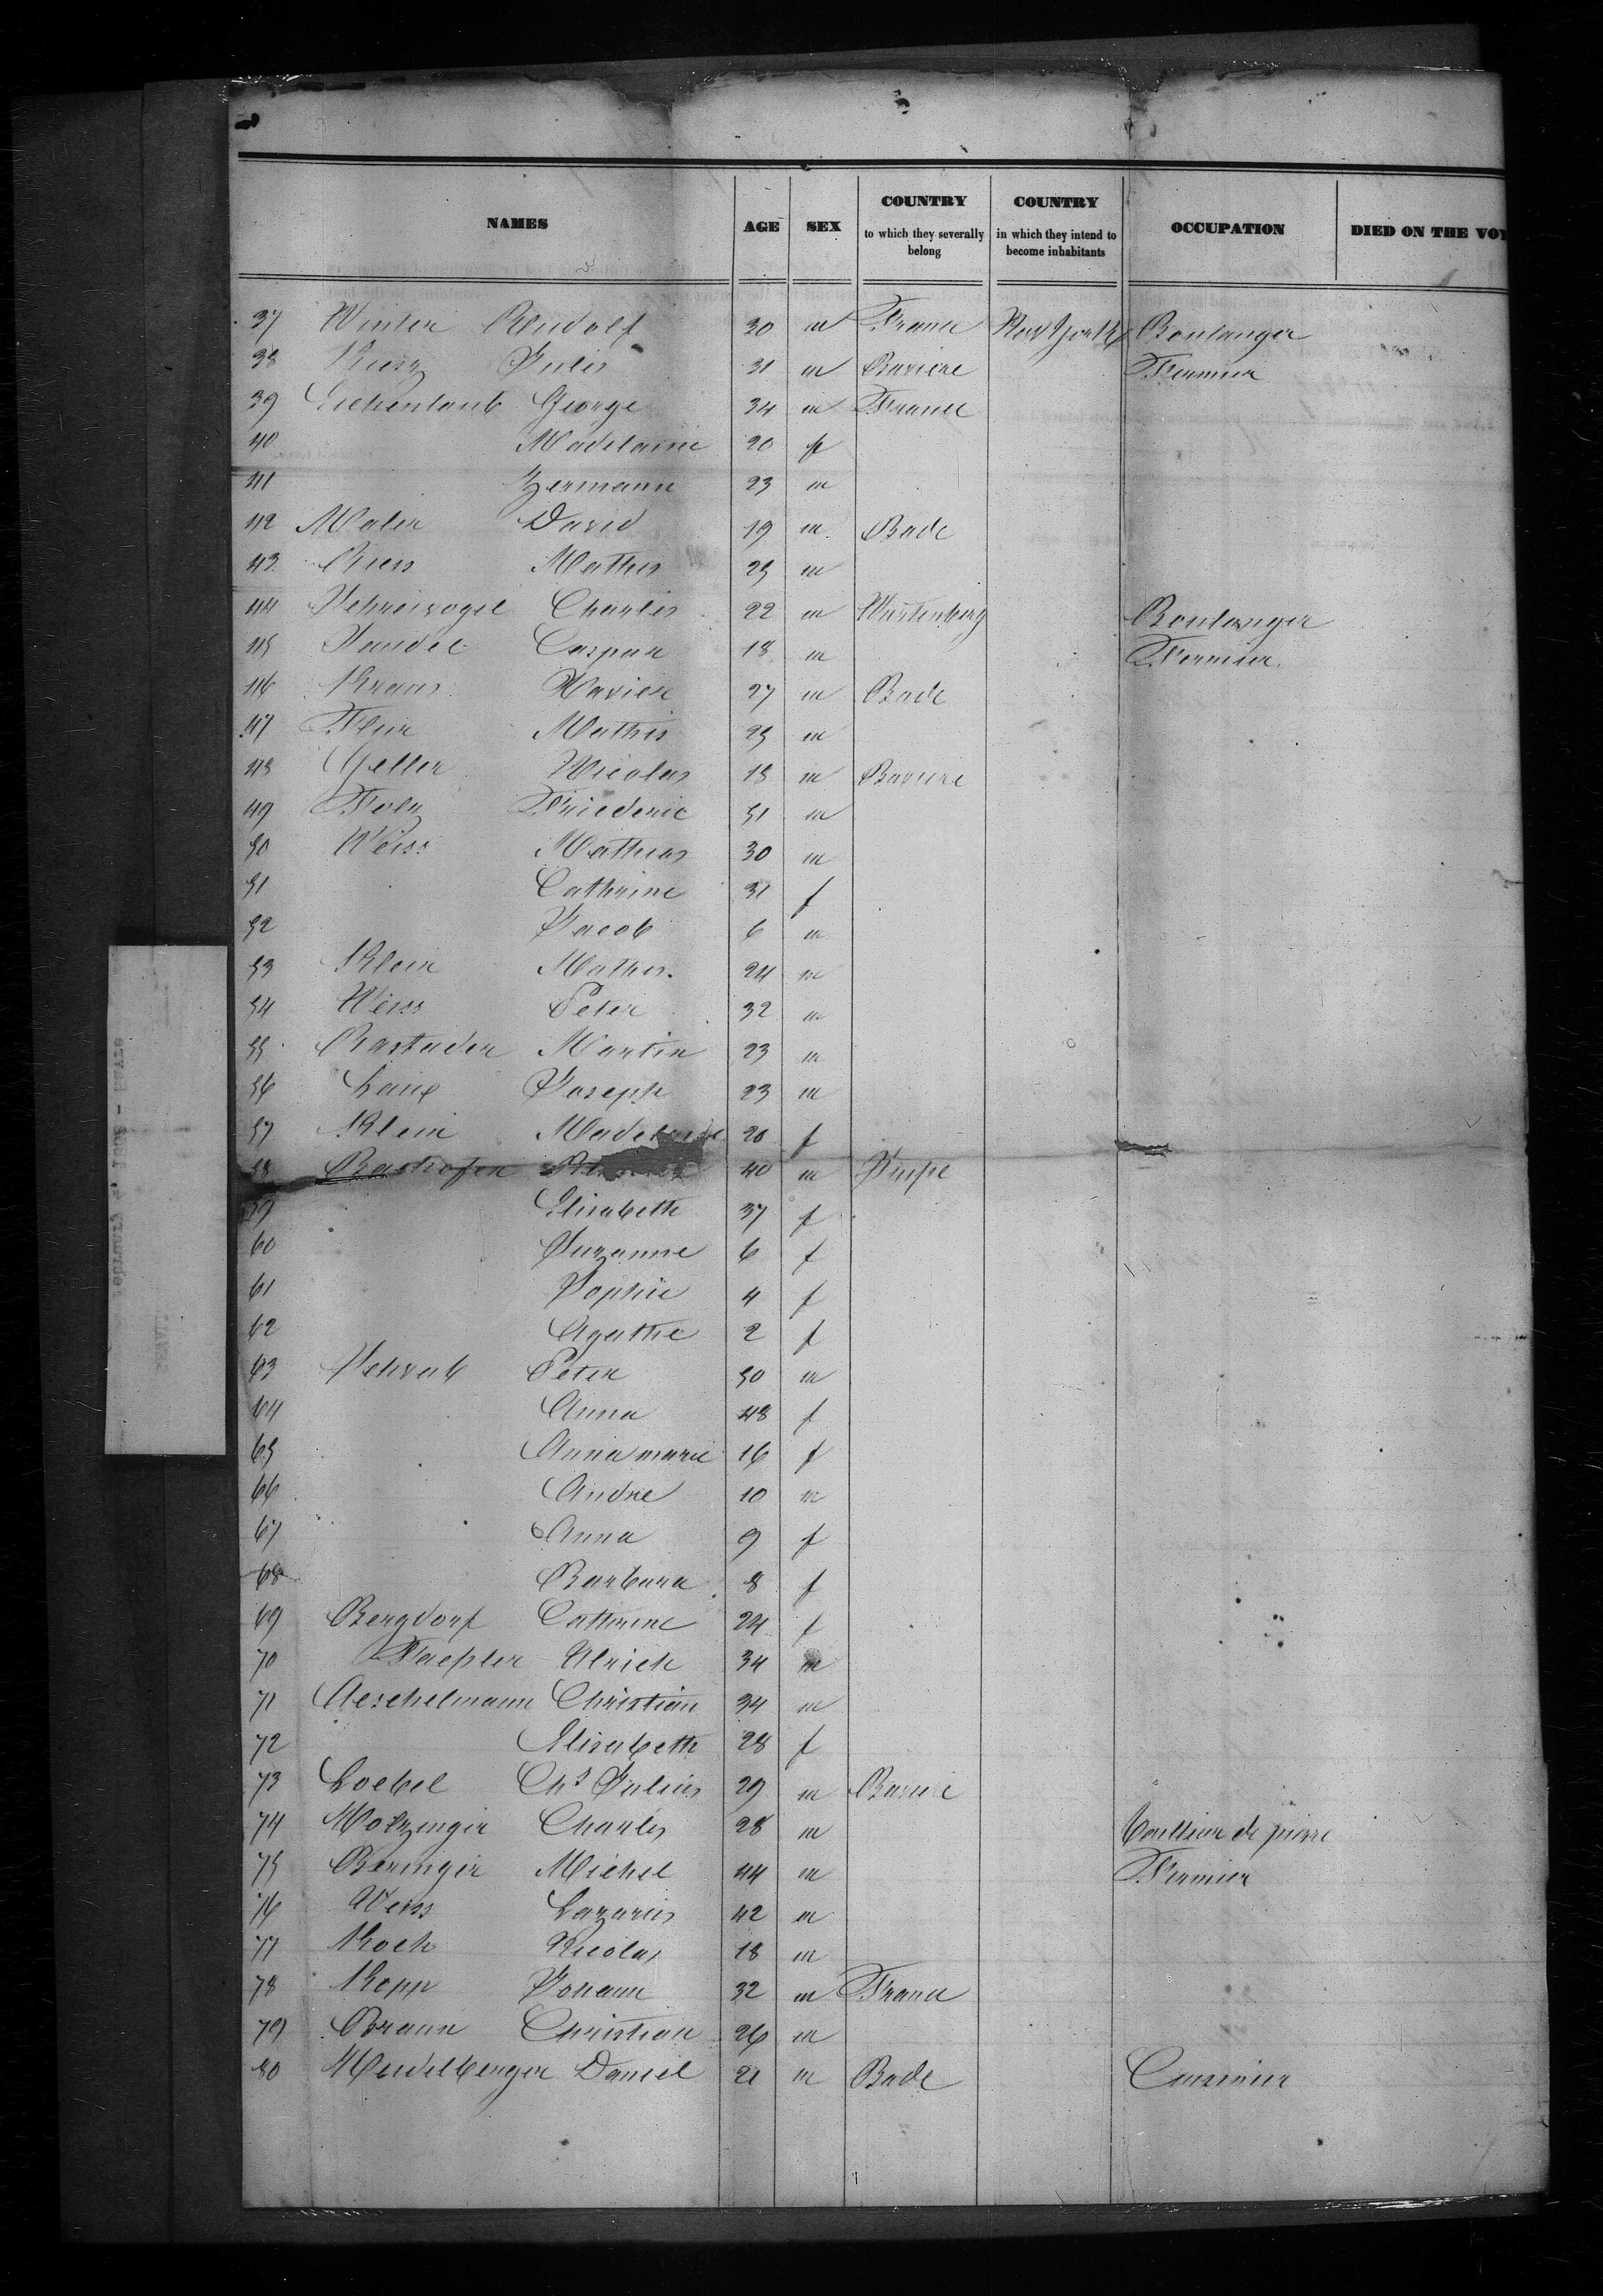 NAMES AGE SEX COUNTRY to which they severally belong COUNTRY in which they intend to become inhabitants OCCUPATION DIED ON THE VOY
37 Winter Rudolf 30 m France New York Boulanger
38 Kurz Julis 31 m Baviere Fermier
39 Lichentaub George 34 m France
40 Madelaine 20 f
41 Hermann 23 m
42 Maler David 19 m Bade
43 Mathis 25 m
44 Schreivogel Charles 22 m Wurtenberg Boulanger
45 Caspar 18 m Fermier
46 Kraus Xavier 27 m Bade
47 Mathis 25 m
48 Geller Nicolas 18 m Baviere
49 Folz Friederic 51 m
50 Weiss Mathias 30 m
51 Cathrine 31 f
52 Jacob 6 m
53 Klein Mathis 24 m
54 Weiss Peter 32 m
55 Martin 23 m
56 Joseph 23 m
57 Klein 20 f
58 40 m Suisse
59 Elisabeth 37 f
60 Suzanne 6 f
61 Sophie 4 f
62 Agathe 2 f
63 Schwab Peter 50 m
64 Anna 48 f
65 Anna marie 16 f
66 Andre 10 m
67 Anna 9 f
68 Barbara 8 f
69 Bergdorf Cathrine 24 f
70 Ulrich 34 m
71 Aeschelmann Christian 34 m
72 Elisabeth 28 f
73 Loebel Chs Julius 29 m Baviere
74 Motzinger Charles 28 m Tailleur de pierre
75 Beringer Michel 44 m Fermier
76 Weiss Lazarus 42 m
77 Koch Nicolas 18 m
78 Kopp Johann 32 m France
79 Braun Christian 26 m
80 Heidelberger Daniel 21 m Bade Cuisinier